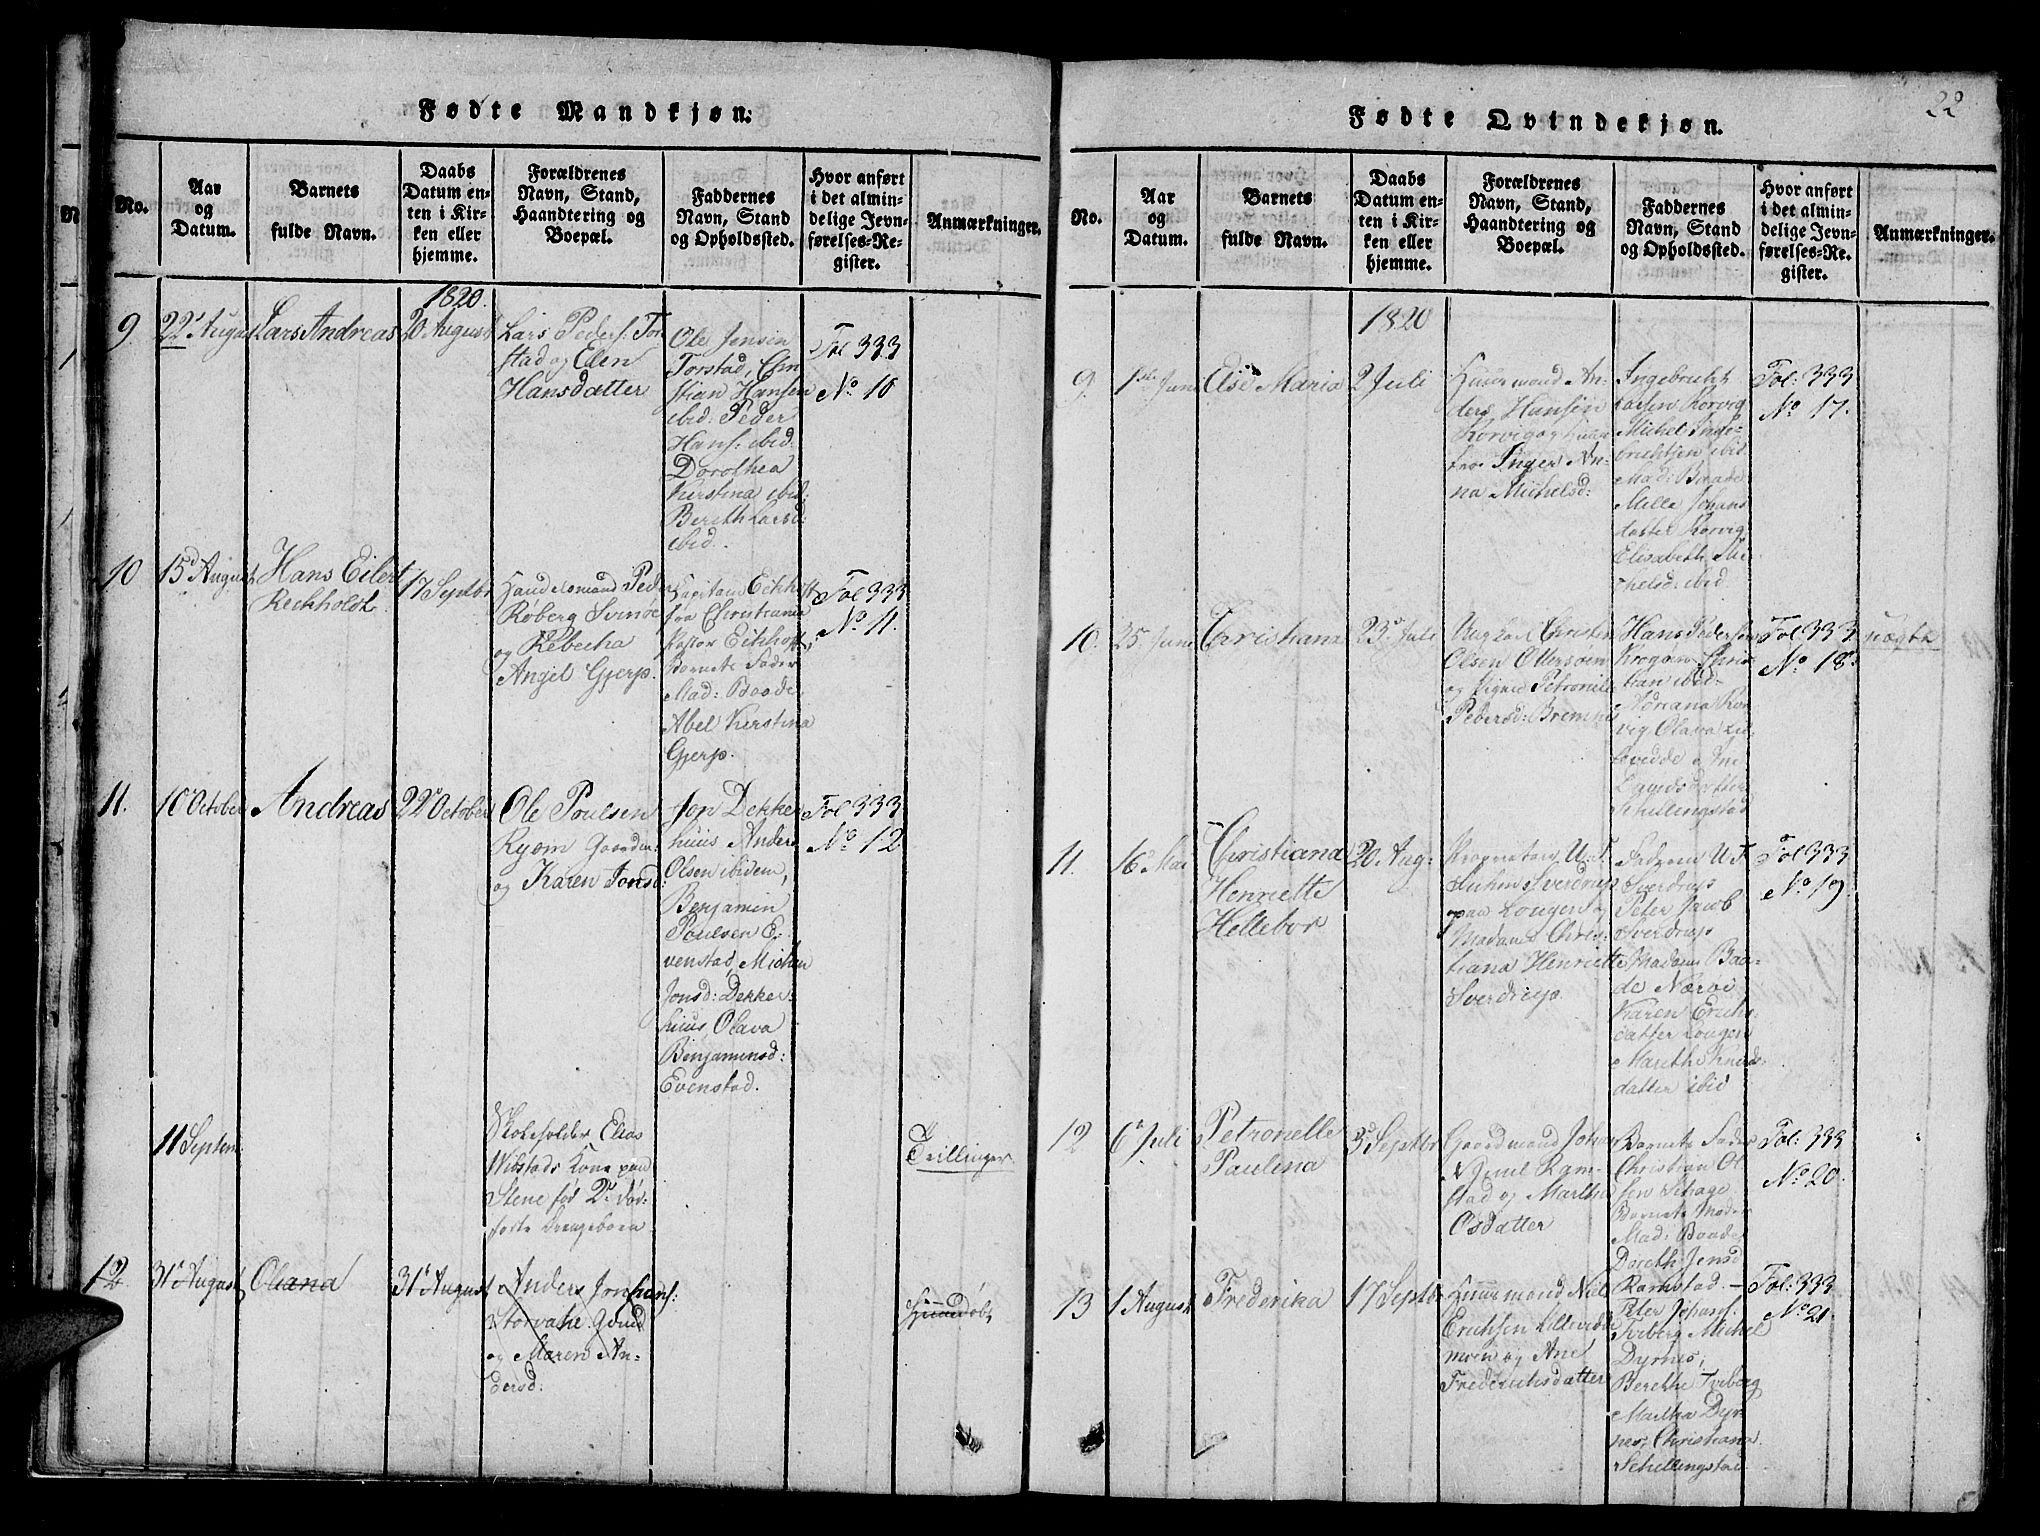 Fødte Mandkjøn.
No.
Aar
og
Datum.
Barnets
fulde Navn.
Daabs
Datum en-
ten i Kir-
ken eller
hjemme.
Forældrenes
Navn, Stand,
Haandtering og
Boepæl.
Faddernes
Navn, Stand
og Opholdssted.
Hvor anført
i det almin-
delige Jevn-
førelses-Re-
gister.
Anmærkninger.
1820.
9
22 August
Lars Andreas
20 August
Lars Peders: Tor-
stad og Elen
Hansdatter
Ole Jensen
Torstad, Chri
stian Hansen
ibid: Peder
Hans: ibid
Dorothea
Kirstina ibid:
Bereth Larsd:
ibid.
Fol 333
No 10
10
15d August
Hans Eilert
Reckholdt
17 Septbr
Handelsmand Peder
Røberg Svinøe
og Rebecha
Angel Gjerp.
Capitain Eickhoff
fra Christiania
Pastor Eickhoff,
Barnets Fader
Mad: Baade
Abel Kirstina
Gjerp.
Fol 333
No 11.
11.
10 October
Andreas
22 October
Ole Poulsen
Ryom Gaardm:
og Karen Jonsd:
Jon Dekker
huus Anders
Olsen ibidem,
Benjamin
Poulsen E-
venstad,
Jonsd: Dekker-
huus, Olava
Benjaminsd:
Evenstad.
Fol 333
No 12
11 Septem
Skoleholder Elias
Wibstads Kone paa
Stene fød 2 død-
fødte Drengebørn
Trillinger
12
31 August
Olana
31 August
Anders Jon hans:
Storvahe
og Maren An-
dersd:
Fødte Qvindekjøn.
22
No.
Aar
og
Datum.
Barnets
fulde Navn.
Daabs
Datum en-
ten i Kir-
ken eller
hjemme.
Forældrenes
Navn, Stand,
Haandtering og
Boepæl.
Faddernes
Navn, Stand
og Opholdssted.
Hvor anført
i det almin-
delige Jevn-
førelses-Re-
gister.
Anmærkninger.
1820
9.
1ste Juni
Else Maria
2 Juli
Huusmand An-
ders Hansen
Korvig og Huus
tro Inger An-
na Michelsd:
Ingebricht
Larsen Korvig
Michel Inge-
brichtsen ibid
Mad: Baade
Mille Johans
datter Korvig
Elisabeth Mi-
chelsd: ibid
Fol: 333
No 17.
10.
25 Juni
Christiana
23 Juli
Ungkarl Christen
Olsen Ottersøen
og Pigen Petronille
Pedersd: Bremsnes
Hans Pedersen
Krogøen Chris
tian ibid
Adriana Kor
vig, Olava
Schillingstad
Fol 333
No 18.
uægte
11.
16 Mai
Christiana
Henriette
Hellebor
20 Aug:
Proprietair U: F.
Suhm Sverdrup
paa Lougen og
Madame Chris-
tiana Henriette
Sverdrup
Fadrene U: F.
Sverdrup
Peter Jacob
Sverdrup
Madam Baa-
de Nærøe
Karen Erichs
datter Lougen
Mareth Knuds-
datter ibid
Fol 333
No 19.
12
6 Juli
Petronelle
Paulina
3 Septbr
Gaardmand Johan
Ram-
stad og Martha
Osdatter
Barnets Fader
Christian Ol
sen Schage
Barnets Moder
Mad: Baade
Doreth Jensd
Ramstad. —
Fol: 333
No 20.
13
1 August
Frederika
17 Septbr
Huusmand Niel
Erichsen Lillevedde
moen og Ane
Frederichsdatter
Peter Johans:
Tviberg Michel
Dyrnes,
Berethe Tviberg
Martha Dyr-
nes, Christiana
Schillingstad
Fol: 333
No 21